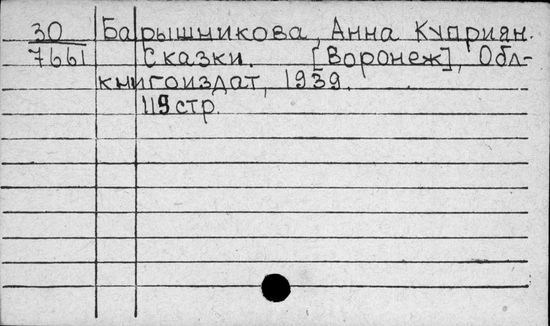 30 Барышникова, Анна Куприян.
7661 Сказки. [Воронеж], Обл-
книгоиздат, 1939.
119 стр.